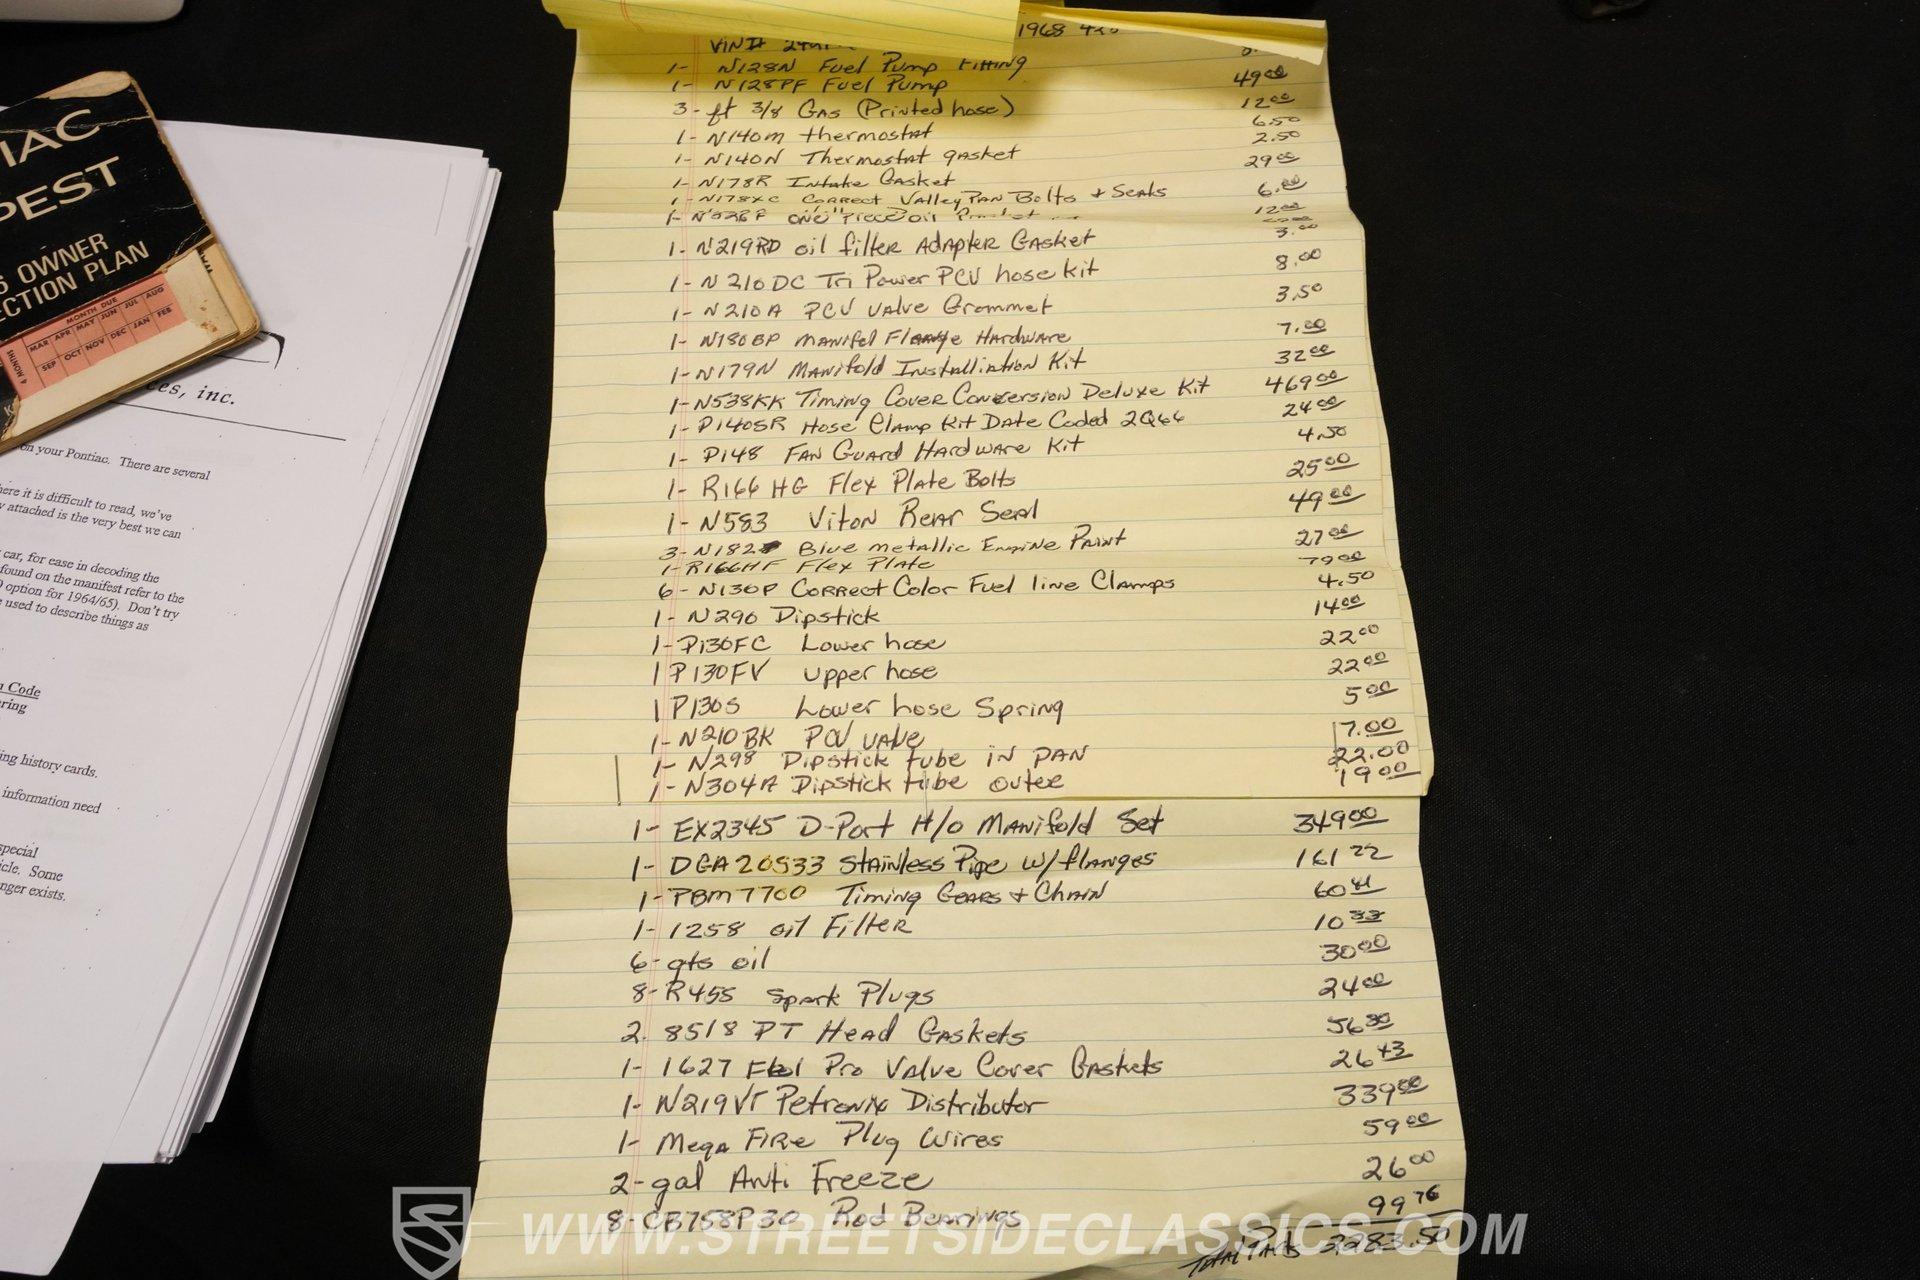 IAC
PEST
OWNER
ECTION PLAN
MONTH DUE
MAR APR MAY JUN JUL AUG
SEP OCT NOV DEC JAN FEB
4 MONTHS
ces, inc.
on your Pontiac. There are several
here it is difficult to read, we've
attached is the very best we can
car, for ease in decoding the
found on the manifest refer to the
option for 1964/65). Don't try
used to describe things as
Code
ring
ing history cards.
information need
special
icle. Some
nger exists.
1968
VIN#
1- N128N Fuel Pump Fitting
1- N128PF Fuel Pump 49.00
3- ft 3/8 Gas (Printed hose) 12.00
1- N140M thermostat 6.50
1- N140N Thermostat gasket 2.50
1- N178R Intake Gasket 29.00
1- N178XC Correct Valley Pan Bolts + Seals 6.00
one Piece oil 12.00
1- N219RD oil filter Adapter Gasket 3.00
1- N210DC Tri Power PCV hose kit 8.00
1- N210A PCV valve Grommet 3.50
1- N180BP Manifel Flange Hardware 7.00
1- N179N Manifold Installiation Kit 32.00
1- N538KK Timing Cover Conversion Deluxe Kit 469.00
1- P140SR Hose Clamp Kit Date Coded 2Q66 24.00
1- P148 Fan Guard Hardware Kit 4.50
1- R166HG Flex Plate Bolts 25.00
1- N583 Viton Rear Seal 49.00
3- N182 Blue metallic Engine Paint 27.00
1- R166HF Flex Plate 79.00
6- N130P Correct Color Fuel line Clamps 4.50
1- N290 Dipstick 14.00
1- P130FC Lower hose 22.00
1 P130FV upper hose 22.00
1 P130S Lower hose Spring 5.00
1- N210BK PCV valve 17.00
1- N298 Dipstick tube in pan 22.00
1- N304A Dipstick tube outer 19.00
1- EX2345 D-Port H/o Manifold Set 349.00
1- DGA20533 Stainless Pipe w/flanges 161.22
1- PBM7700 Timing Gears + Chain 60.41
1- 1258 oil Filter 10.33
6- qts oil 30.00
8- R45S Spark Plugs 24.00
2. 8518 PT Head Gaskets 56.80
1- 1627 Fel Pro Valve Cover Gaskets 26.43
1- N219VT Petronix Distributor 339.00
1- Mega Fire Plug Wires 59.00
2- gal Anti Freeze 26.00
8- CB758P30 Rod Bearings 99.76
Total Parts 2283.50
WWW.STREETSIDECLASSICS.COM